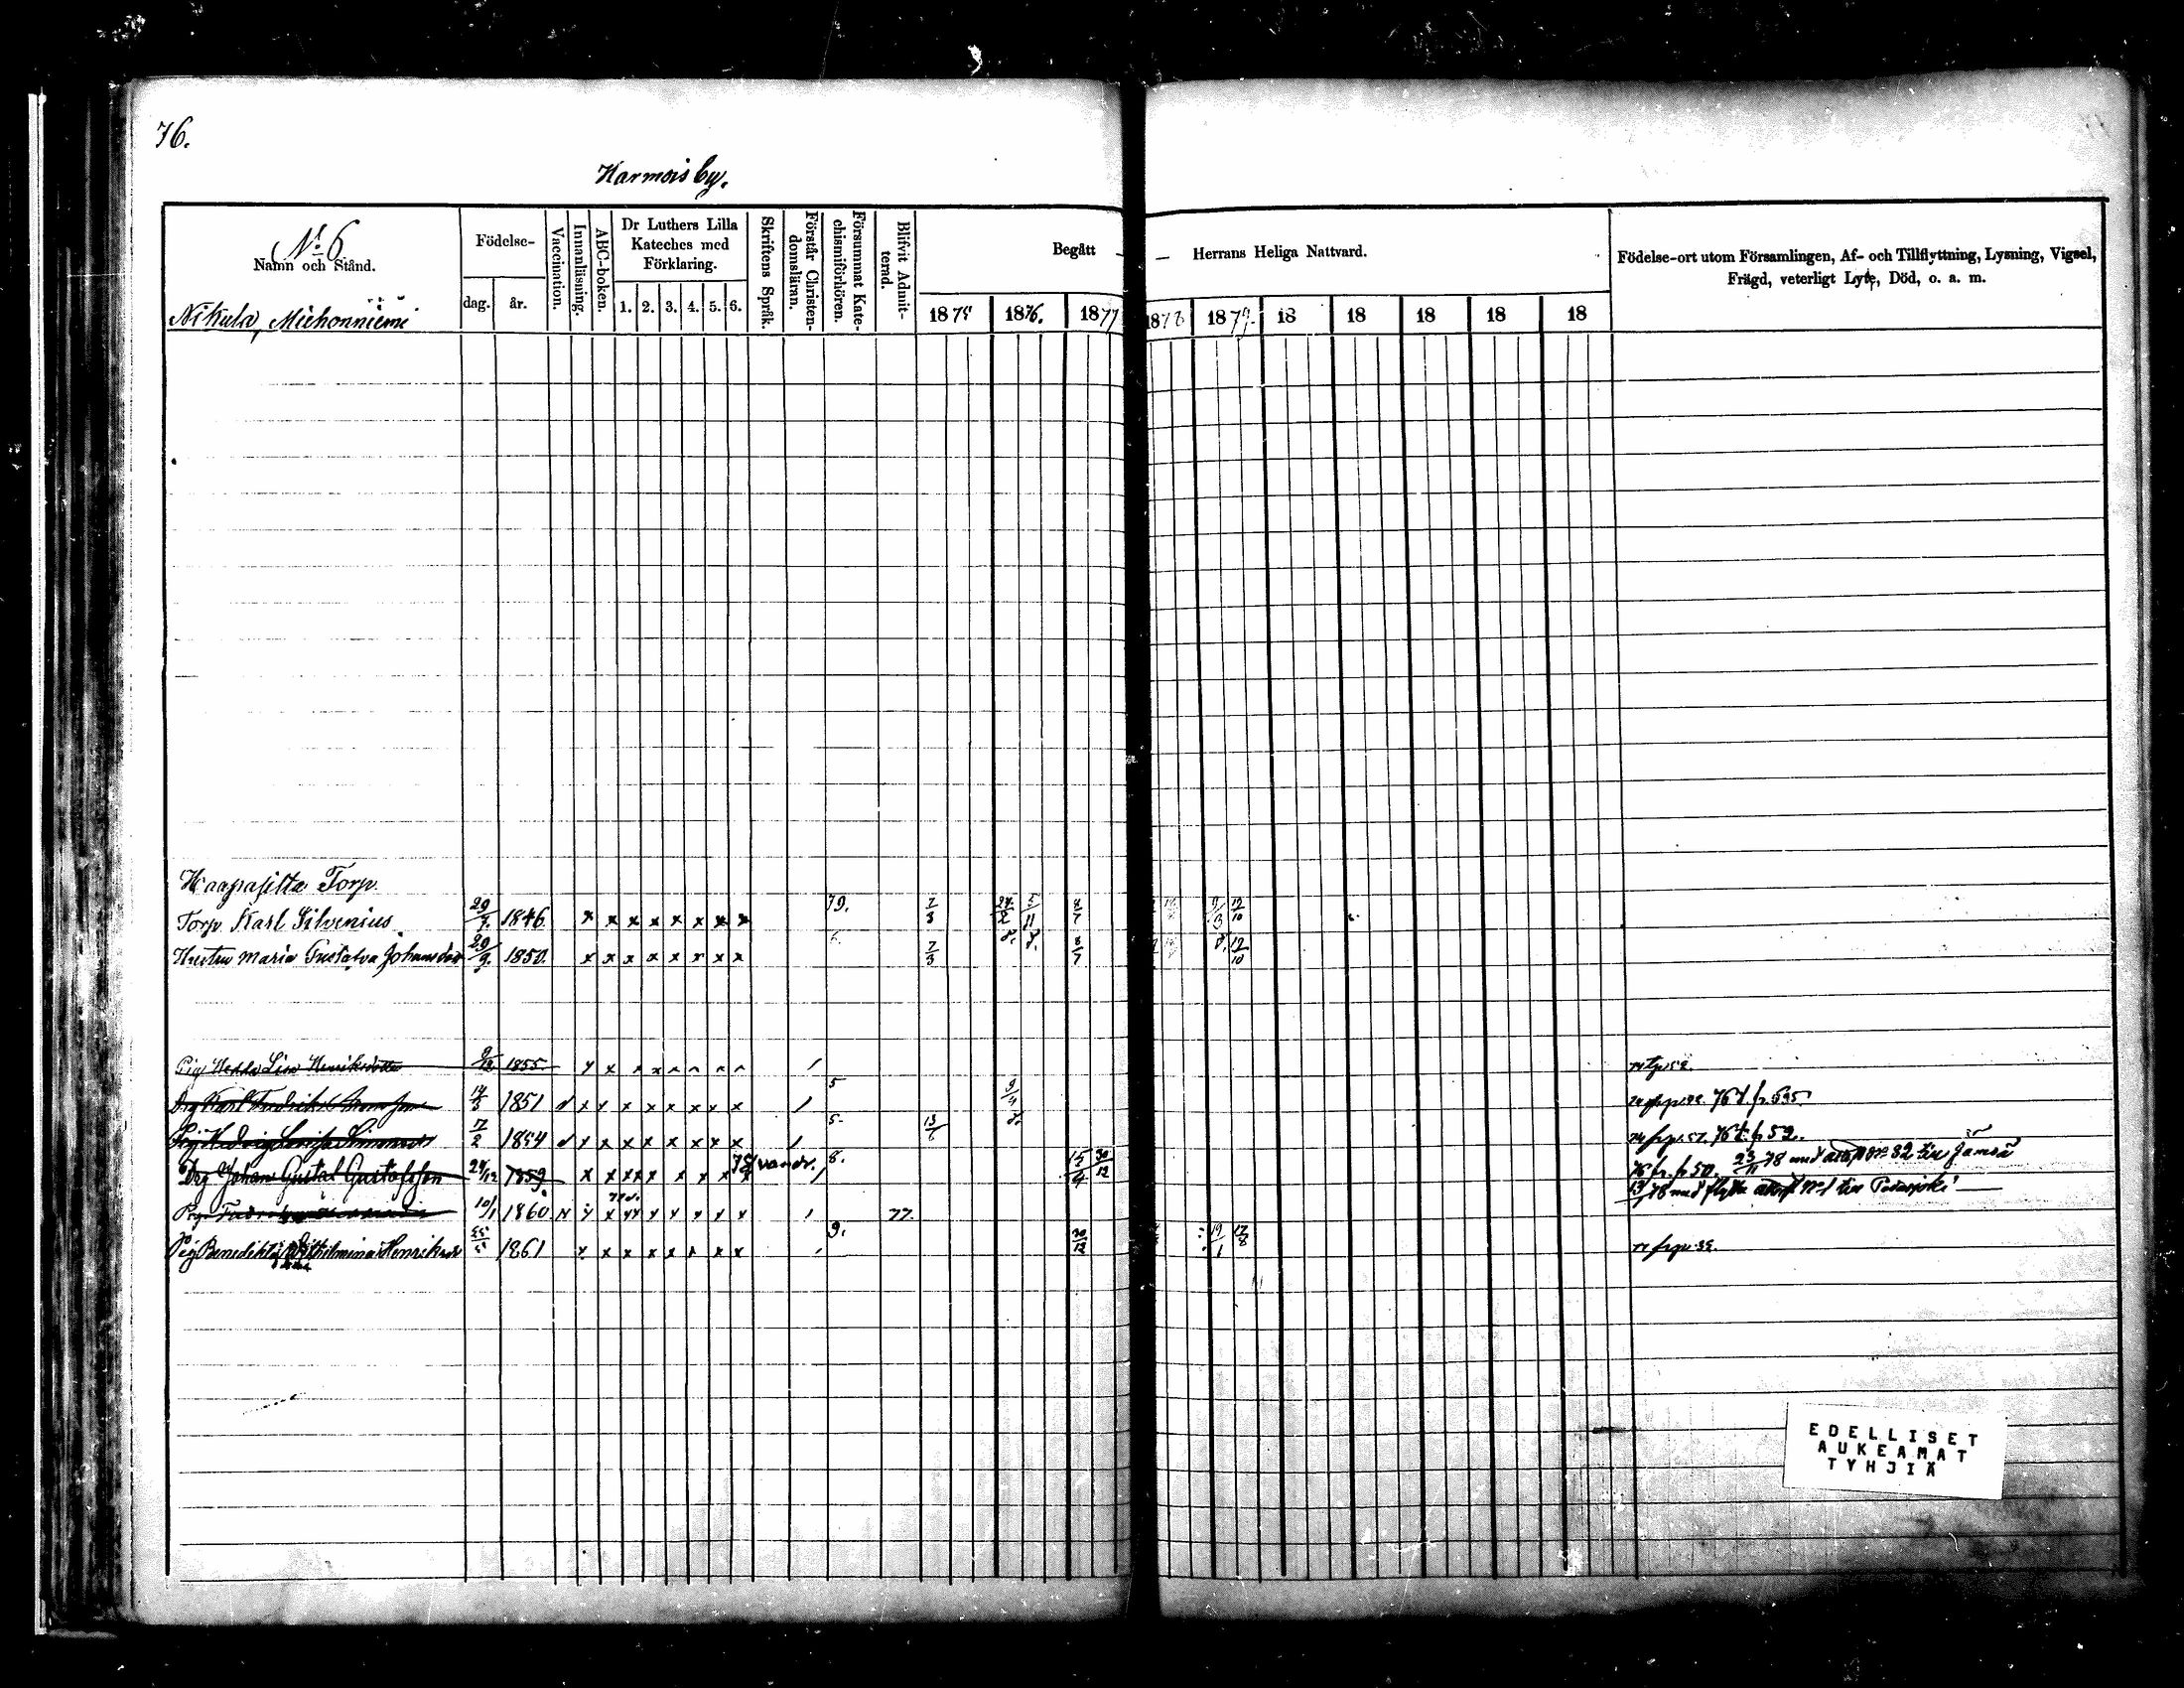 76.
Harmois by.
No 6
Namn och Stånd.
Nikula, Miehonniemi
Födelse-
dag.
år.
Vaccination.
Innanläsning.
ABC-boken.
Dr Luthers Lilla
Kateches med
Förklaring.
1. 2. 3. 4. 5. 6.
Skriftens Språk.
Förstår Christen-
domsläran.
Försummat Kate-
chismiförhören.
Blifvit Admit-
terad.
Begått — — Herrans Heliga Nattvard.
1875 1876. 1877 1878 1879. 18 18 18 18 18
Födelse-ort utom Församlingen, Af- och Tillflyttning, Lysning, Vigsel,
Frägd, veterligt Lyte, Död, o. a. m.
Haapasilta Torp.
Torp. Karl Silvenius 29/7. 1846. x x x x x x x x 79. 7/3 8/7 12/10
Hustru Maria Gustafva Johansdr 29/9. 1850. x x x x x x x x 7/3 8/7 12/10
Pig Hedda Lisa Henriksdotter 9/12 1855.
Drg Karl Fredrik 14/3 1851 x x x x x x x x 5 9/4 76 t. fr. 595
Pig Hedvig Lovisa Simonsdr 17/2 1854 x x x x x x x x 5. 13/6 76 t. p 52.
Drg Johan Gustaf Gustafsson 24/12 1859 x x x x x x x 78 vandr. 8. 15/4 30/12 76 fr. p 50. 23/11 78 med attest No 82 till Jämsä
Pig 10/1 1860 x x x x x x x 77. 13/ 78 med flytta attest No 1 till Padasjoki
Pig Benedikta Vilhelmina Henriksdr 1861 x x x x x x x x 9. 30/12 19/1 17/8
EDELLISET
AUKEAMAT
TYHJIÄ